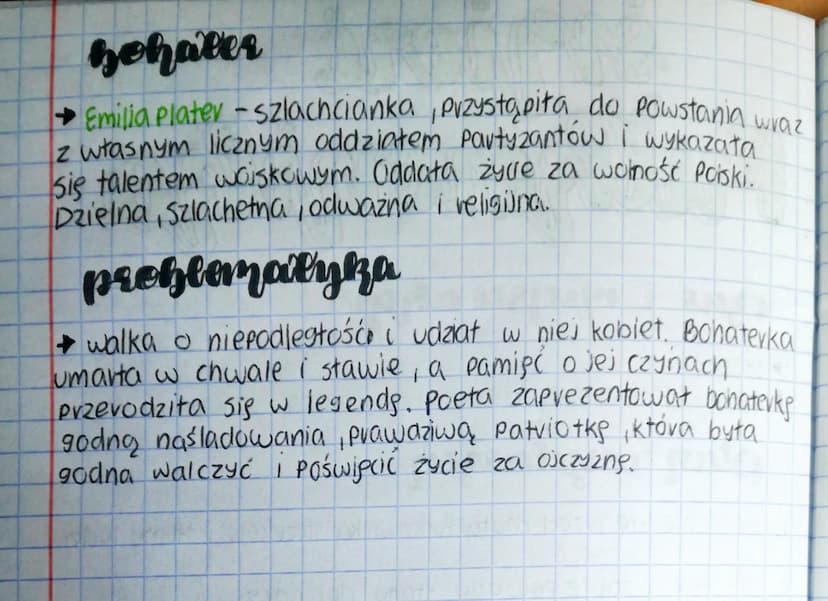 bohater
→ Emilia Plater – szlachcianka, przystąpiła do powstania wraz
z własnym licznym oddziałem partyzantów i wykazała
się talentem wojskowym. Oddała życie za wolność Polski.
Dzielna, szlachetna, odważna i religijna.
problematyka
→ walka o niepodległość i udział w niej kobiet. Bohaterka
umarła w chwale i sławie, a pamięć o jej czynach
przerodziła się w legendę. Poeta zaprezentował bohaterkę
godną naśladowania, prawdziwą patriotkę, która była
godna walczyć i poświęcić życie za ojczyznę.